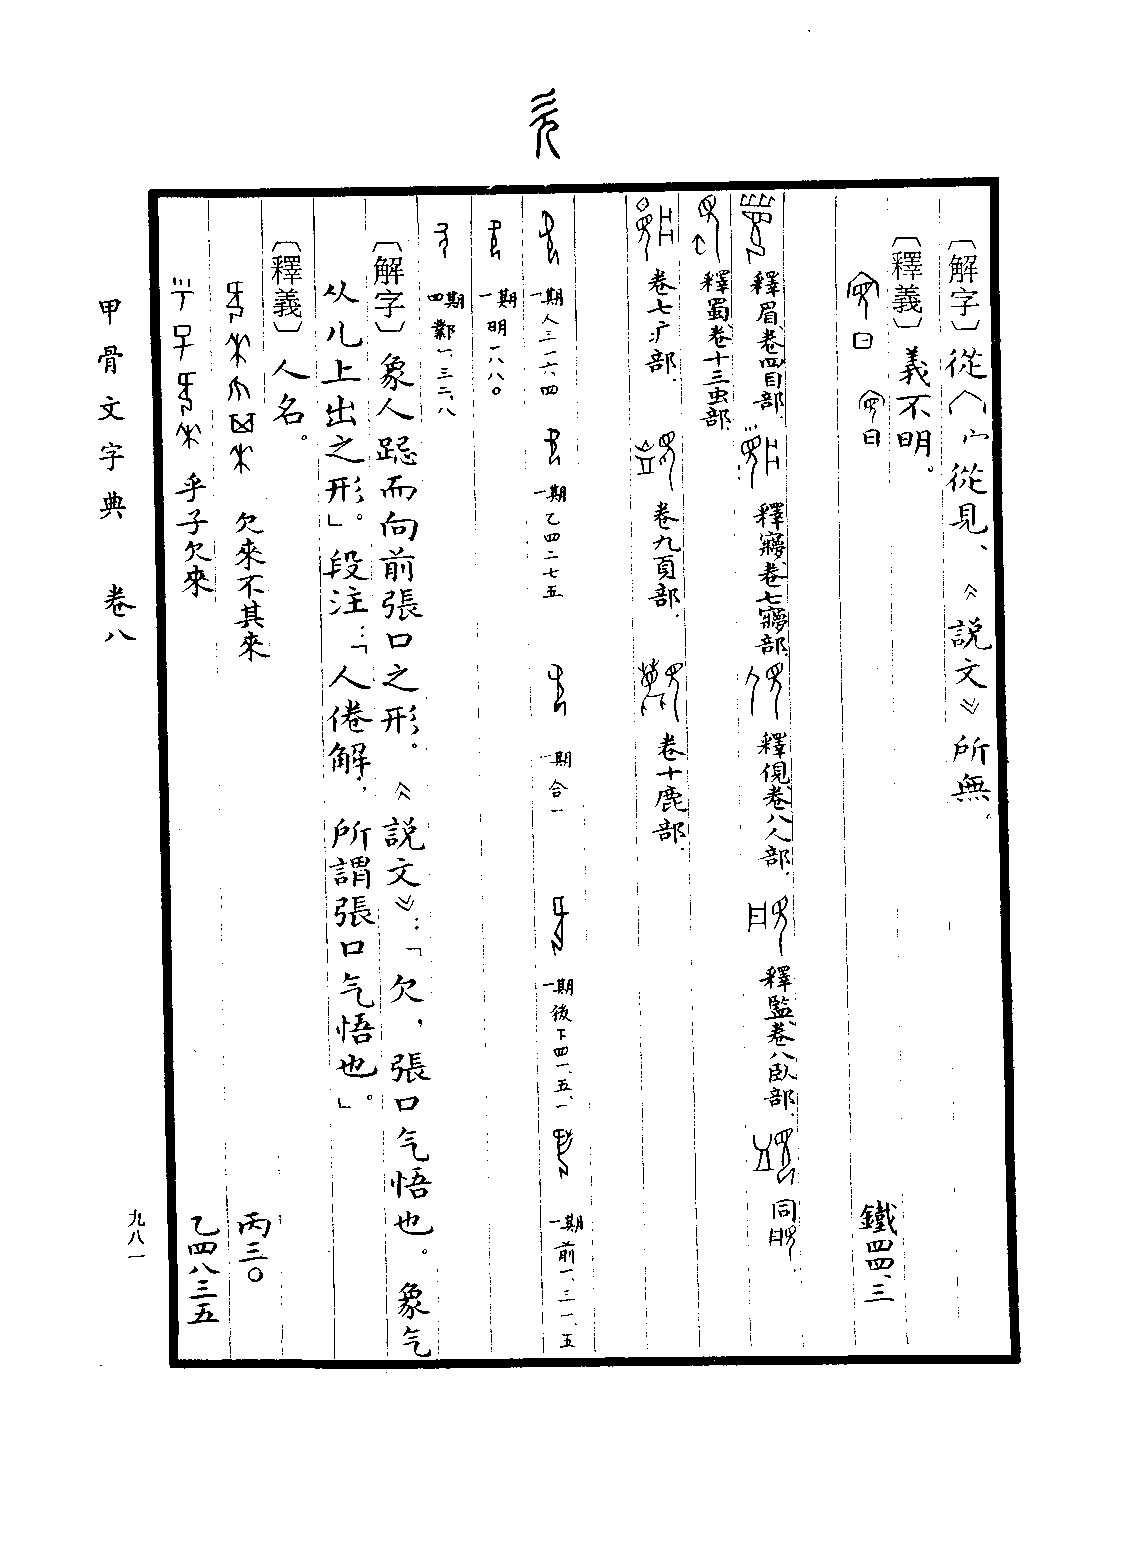 〔解字〕從宀從見、《説文》所無.
〔釋義〕義不明。
鐵四四.三
釋眉、卷四目部. 釋寢卷七寢部. 釋俔、卷八人部. 釋監、卷八臥部. 同
釋蜀、卷十三虫部.
卷七疒部. 卷九頁部. 卷十鹿部.
一期人三一六四 一期乙四二七五 一期合一 一期後下四一.五.一 一期前一.三一.五
一期明一八八〇
四期鄴一.三二.八
〔解字〕象人跽而向前張口之形。《説文》:「欠，張口气悟也。象气
从儿上出之形」。段注:「人倦解，所謂張口气悟也。」
〔釋義〕人名。
欠來不其來 丙三〇
乎子欠來 乙四八三五
甲骨文字典 卷八
九八一